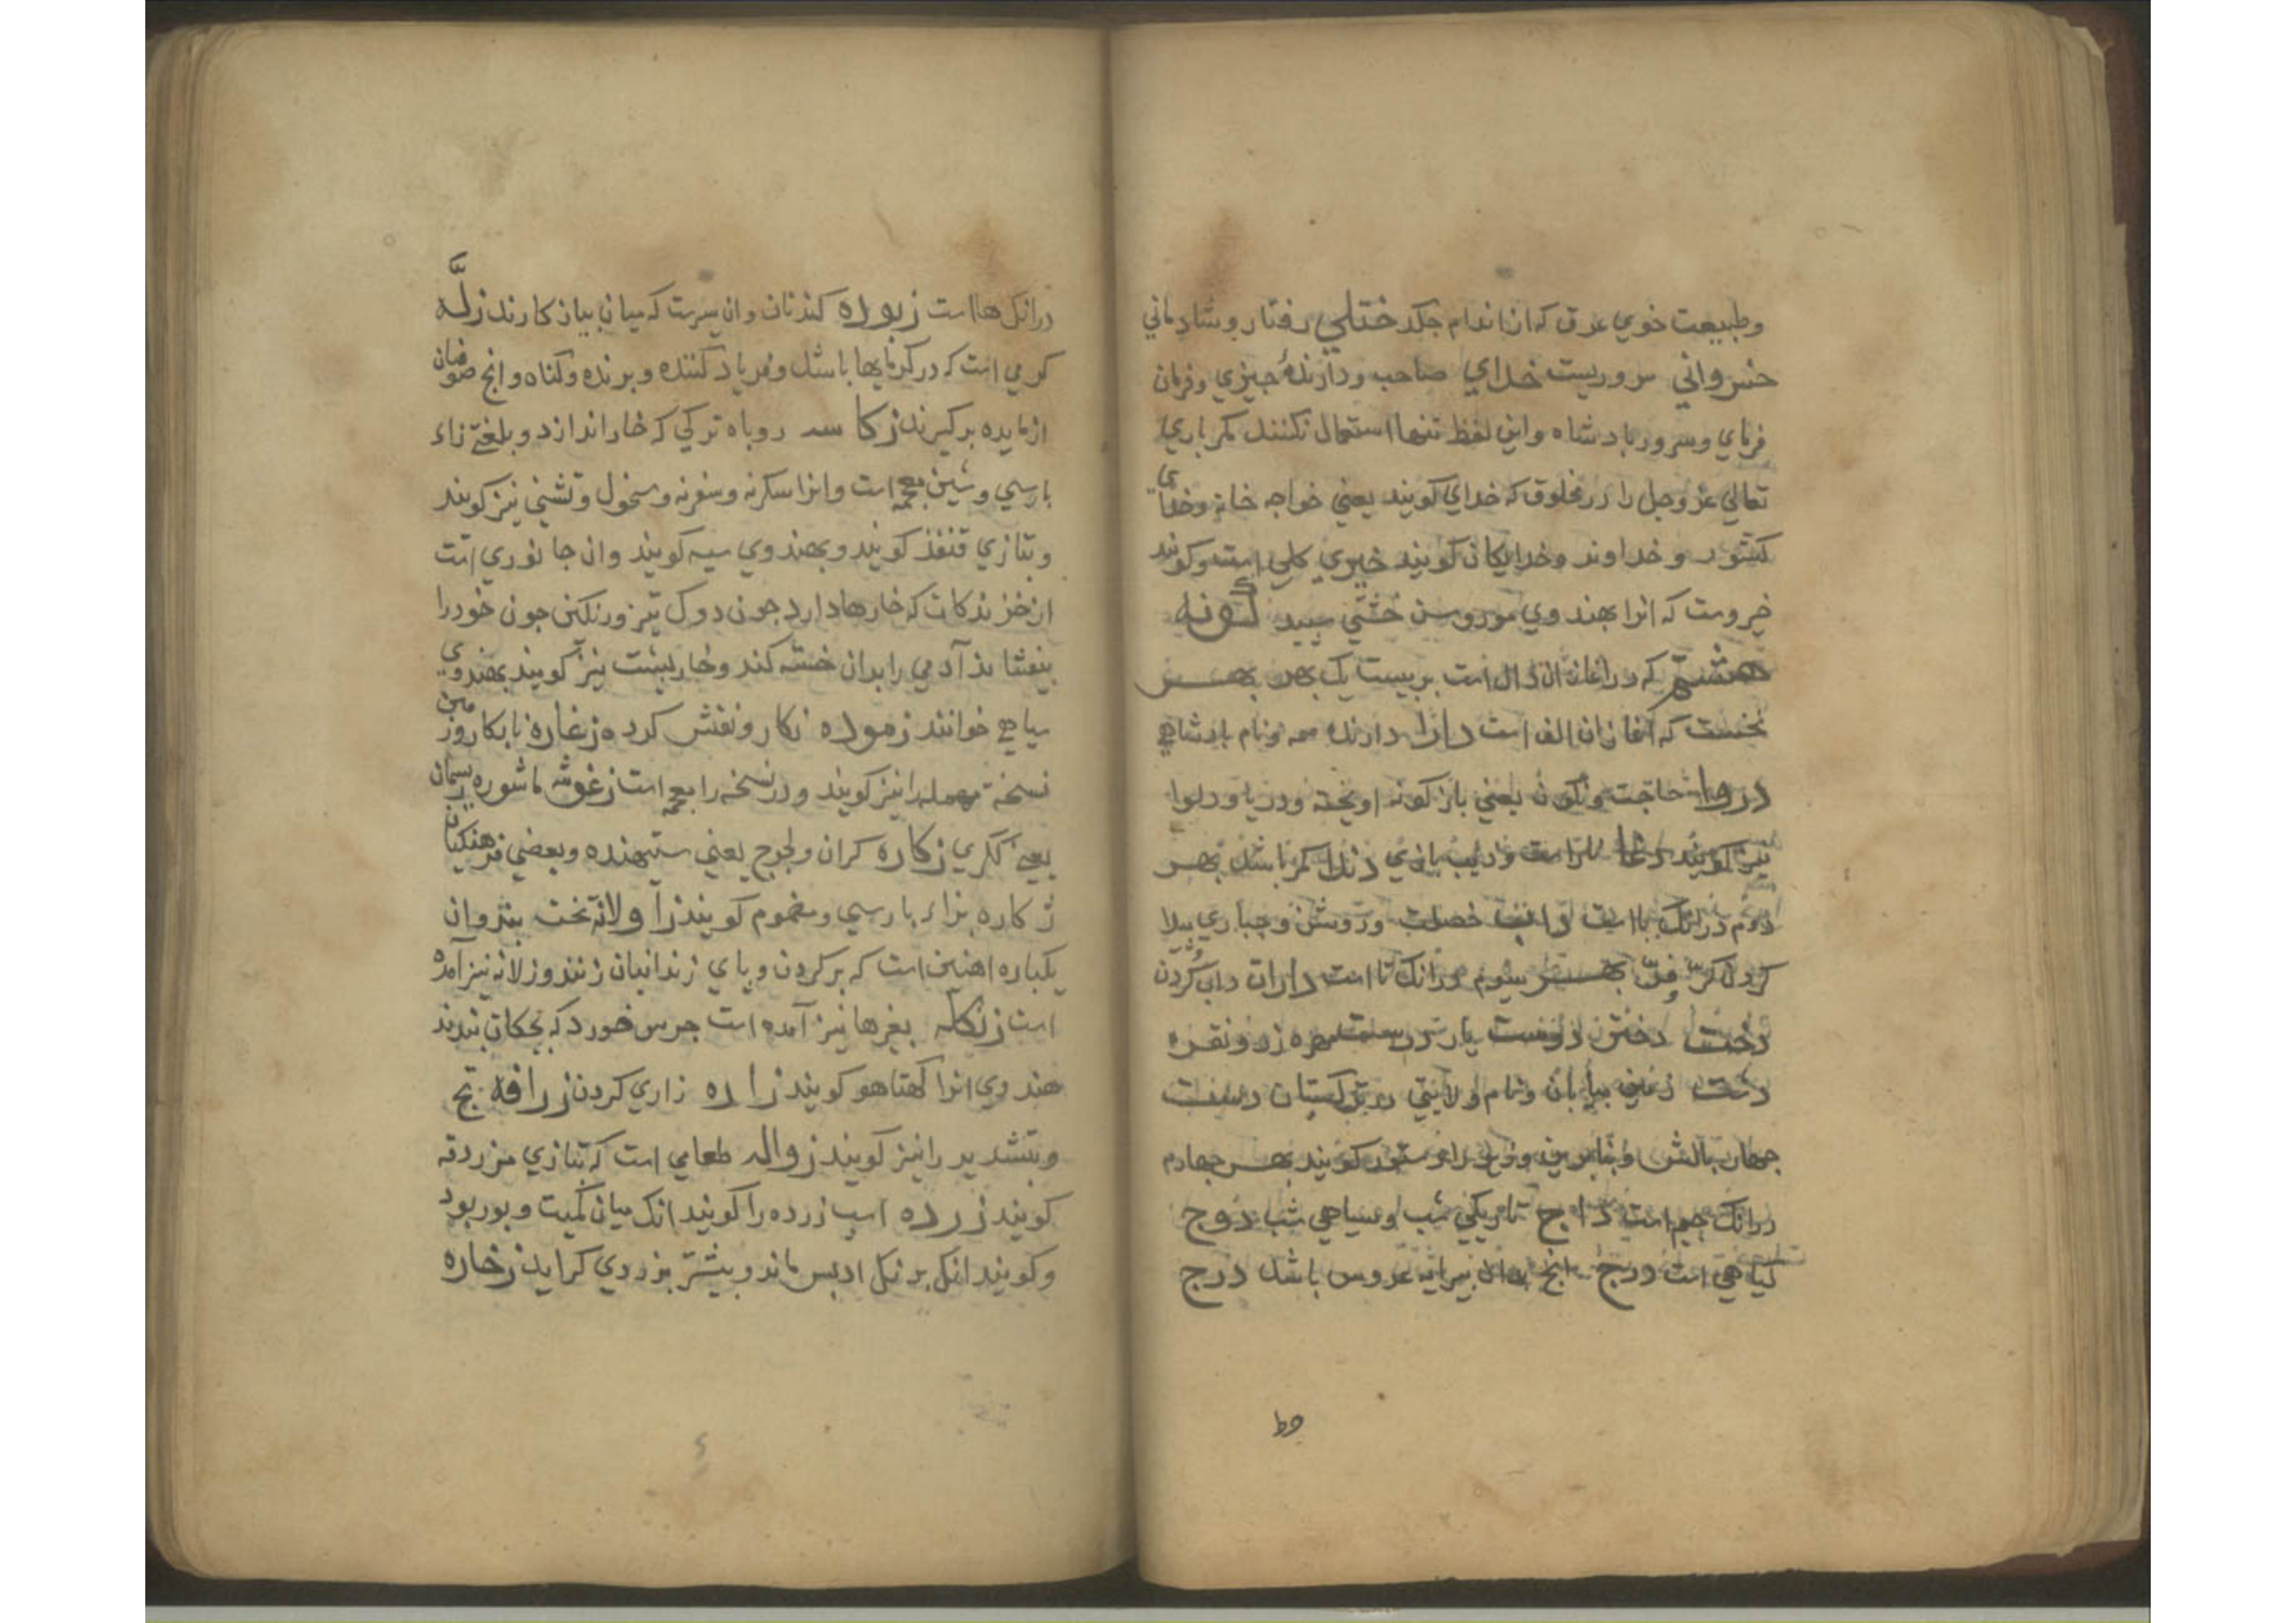 وطبیعت خوي عرق که از اندام جکد ختلي رفتار وشادماني
خسرواني سروریست خداي صاحب ودارندهٔ جیزي وفرمان
فرماي وسرور بادشاه واین لفظ تنها استعمال نکنند مکر باري
تعالي عز وجل را در مخلوق کدخداي کویند یعني خواجه خانه وخداي
کشور و خداوند وخدایکان کویند خیري کلي است وکویند
خروست که انرا بهندوي مورو سن خشتي سبید کونه
هشتم که در اغاز ان دال است بر بیست یک بهر بهر
نخست که اغاز ان الف است دارا دارنده همه ونام بادشاهي
دروا حاجت ونکون یعني بازکونه اویخته ودریا ودلوا
نیز کویند دغا
دوم درانک با است داب خصلت وروش وجباري
کردن کر وفر بهر سیوم درانک تا است داران داب کردن
دخت دختر درست یار درست مهره زر ونقره
دشت زمین بیابان ونام ولایتي در ترکستان دست
جهار بالش بهر جهارم
درانک جیم است داج تاریکي شب وسیاهي شب دوج
کیاهي است درج انج بدان بیرایه عروس باشد درج
وط
درانک ها است زبوده کندنان وان سرست که میان بیاز کارند زلّه
کرمي است که در کرمابها باشد وفریاد کننده وبرنده وکناه وانج صوفیان
از مایده برکیرند زکاسه روباه ترکي که خار اندازد وبلغتي زاء
بارسي وشین معجمه است وانرا سکرنه وسفرنه وسخول وتشني نیز کویند
وبتازي قنفذ کویند وبهندوي سیه کویند وان جانوري است
از خزندکان که خارها دارد جون دوک تیز ورنکین جون خود را
بیفشاند آدمي را بدان خسته کند وخاربشت نیز کویند بهندوي
سیاهي خوانند زموده نکار ونقش کرده زغاره نابکار وزمین
نسخة مهمله را نیز کویند ودر نسخه را معجمه است زغوشه ماشوره ریسمان
یعني ککري زکاره کران ولجوج یعني ستیهنده وبعضي فرهنکیان
ژکاره بزاء بارسي ومضموم کویند زاولانه تخت بند وان
یکباره اهنین است که بر کردن وباي زندانیان زنند وزلانه نیز آمده
است زنکله بغیرها نیز آمده است جرس خورد که بجکان بندند
هندوي انرا کهتاهو کویند زاره زاري کردن زرافه تج
وبتشدید را نیز کویند زواله طعامي است که بتازي مزردقه
کویند زرده اسب زرده را کویند انک میان کمیت وبور بود
وکویند انک برنک ادبس ماند وبیشتر بزردي کراید زخاره